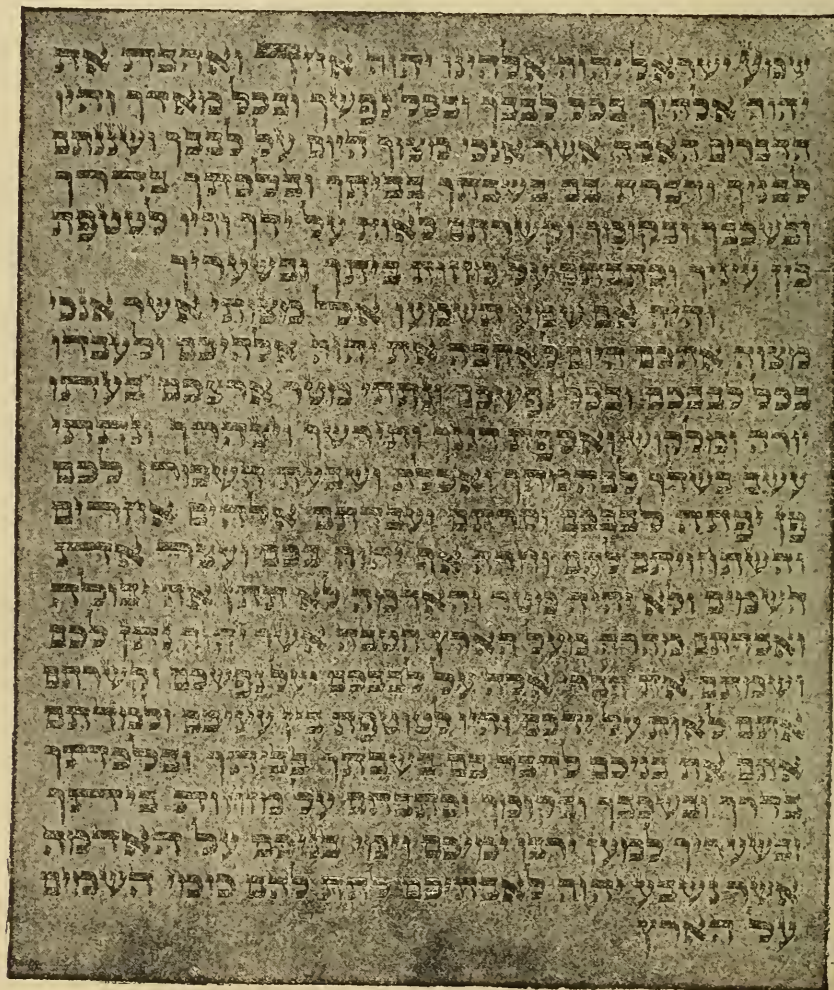 שמע ישראל יהוה אלהינו יהוה אחד ואהבת את
יהוה אלהיך בכל לבבך ובכל נפשך ובכל מאדך והיו
הדברים האלה אשר אנכי מצוך היום על לבבך ושננתם
לבניך ודברת בם בשבתך בביתך ובלכתך בדרך
ובשכבך ובקומך וקשרתם לאות על ידך והיו לטטפת
בין עיניך וכתבתם על מזוזת ביתך ובשעריך
והיה אם שמע תשמעו אל מצותי אשר אנכי
מצוה אתכם היום לאהבה את יהוה אלהיכם ולעבדו
בכל לבבכם ובכל נפשכם ונתתי מטר ארצכם בעתו
יורה ומלקוש ואספת דגנך ותירשך ויצהרך ונתתי
עשב בשדך לבהמתך ואכלת ושבעת השמרו לכם
פן יפתה לבבכם וסרתם ועבדתם אלהים אחרים
והשתחויתם להם וחרה אף יהוה בכם ועצר את
השמים ולא יהיה מטר והאדמה לא תתן את יבולה
ואבדתם מהרה מעל הארץ הטבה אשר יהוה נתן לכם
ושמתם את דברי אלה על לבבכם ועל נפשכם וקשרתם
אתם לאות על ידכם והיו לטוטפת בין עיניכם ולמדתם
אתם את בניכם לדבר בם בשבתך בביתך ובלכתך
בדרך ובשכבך ובקומך וכתבתם על מזוזות ביתך
ובשעריך למען ירבו ימיכם וימי בניכם על האדמה
אשר נשבע יהוה לאבתיכם לתת להם כימי השמים
על הארץ